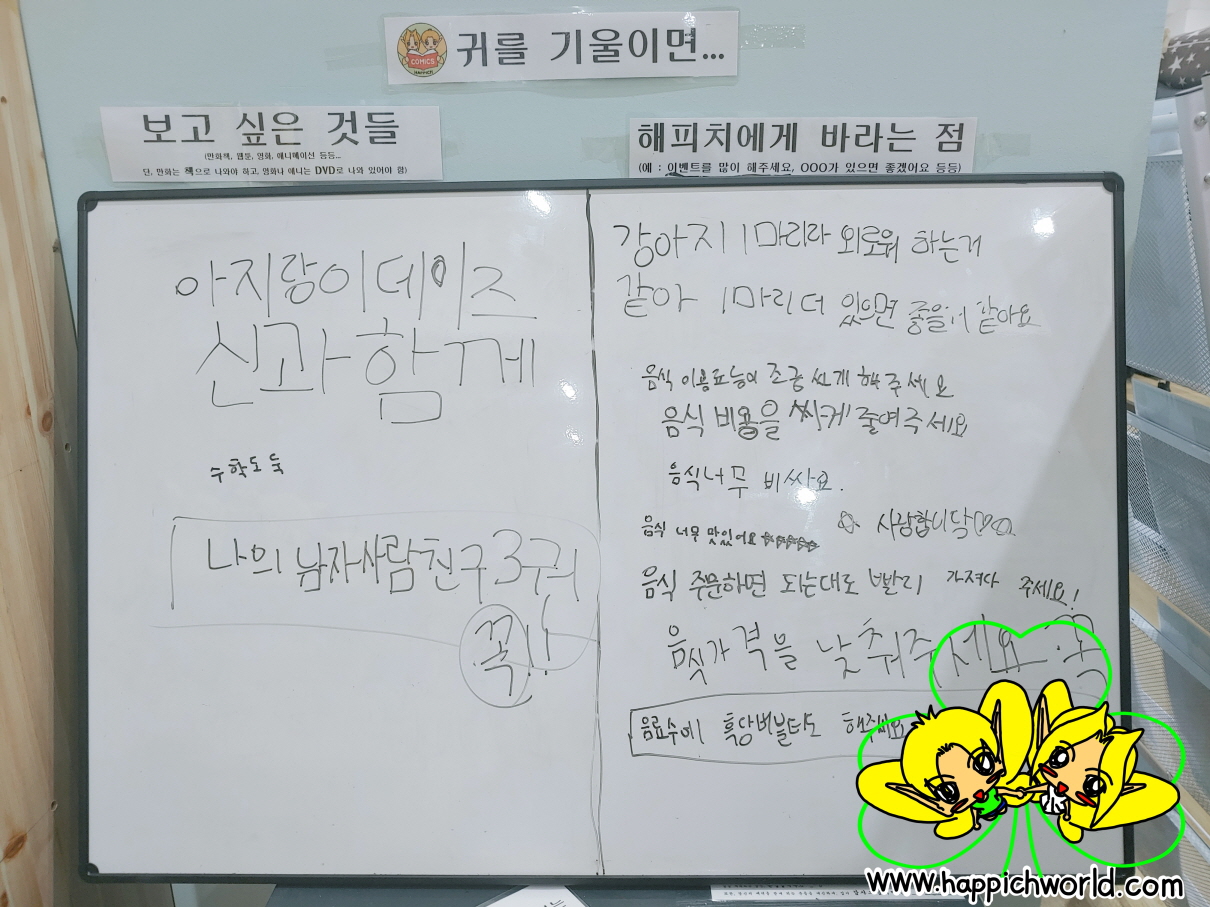 귀를 기울이면...
COMICS
HAPPICH
보고 싶은 것들
(만화책, 웹툰, 영화, 애니메이션 등등...
단, 만화는 책으로 나와야 하고, 영화나 애니는 DVD로 나와 있어야 함)
아지랑이데이즈
신과함께
수학도둑
나의 남자사람친구 3권
꼭!!
해피치에게 바라는 점
(예 : 이벤트를 많이 해주세요, OOO가 있으면 좋겠어요 등등)
강아지 1마리라 외로워 하는거
같아 1마리 더 있으면 좋을거 같아요
음식 이용표능이 조금 싸게 해 주세요
음식 비용을 싸게 줄여주세요
음식너무 비싸요.
음식 너무 맛있어요 ☆☆☆☆☆
☆ 사랑합니닥♡♡
음식 주문하면 되는대로 빨리 가져다 주세요!
음식가격을 낮춰주세요 꼭
음료수에 흑당버블티도 해주세요
www.happichworld.com